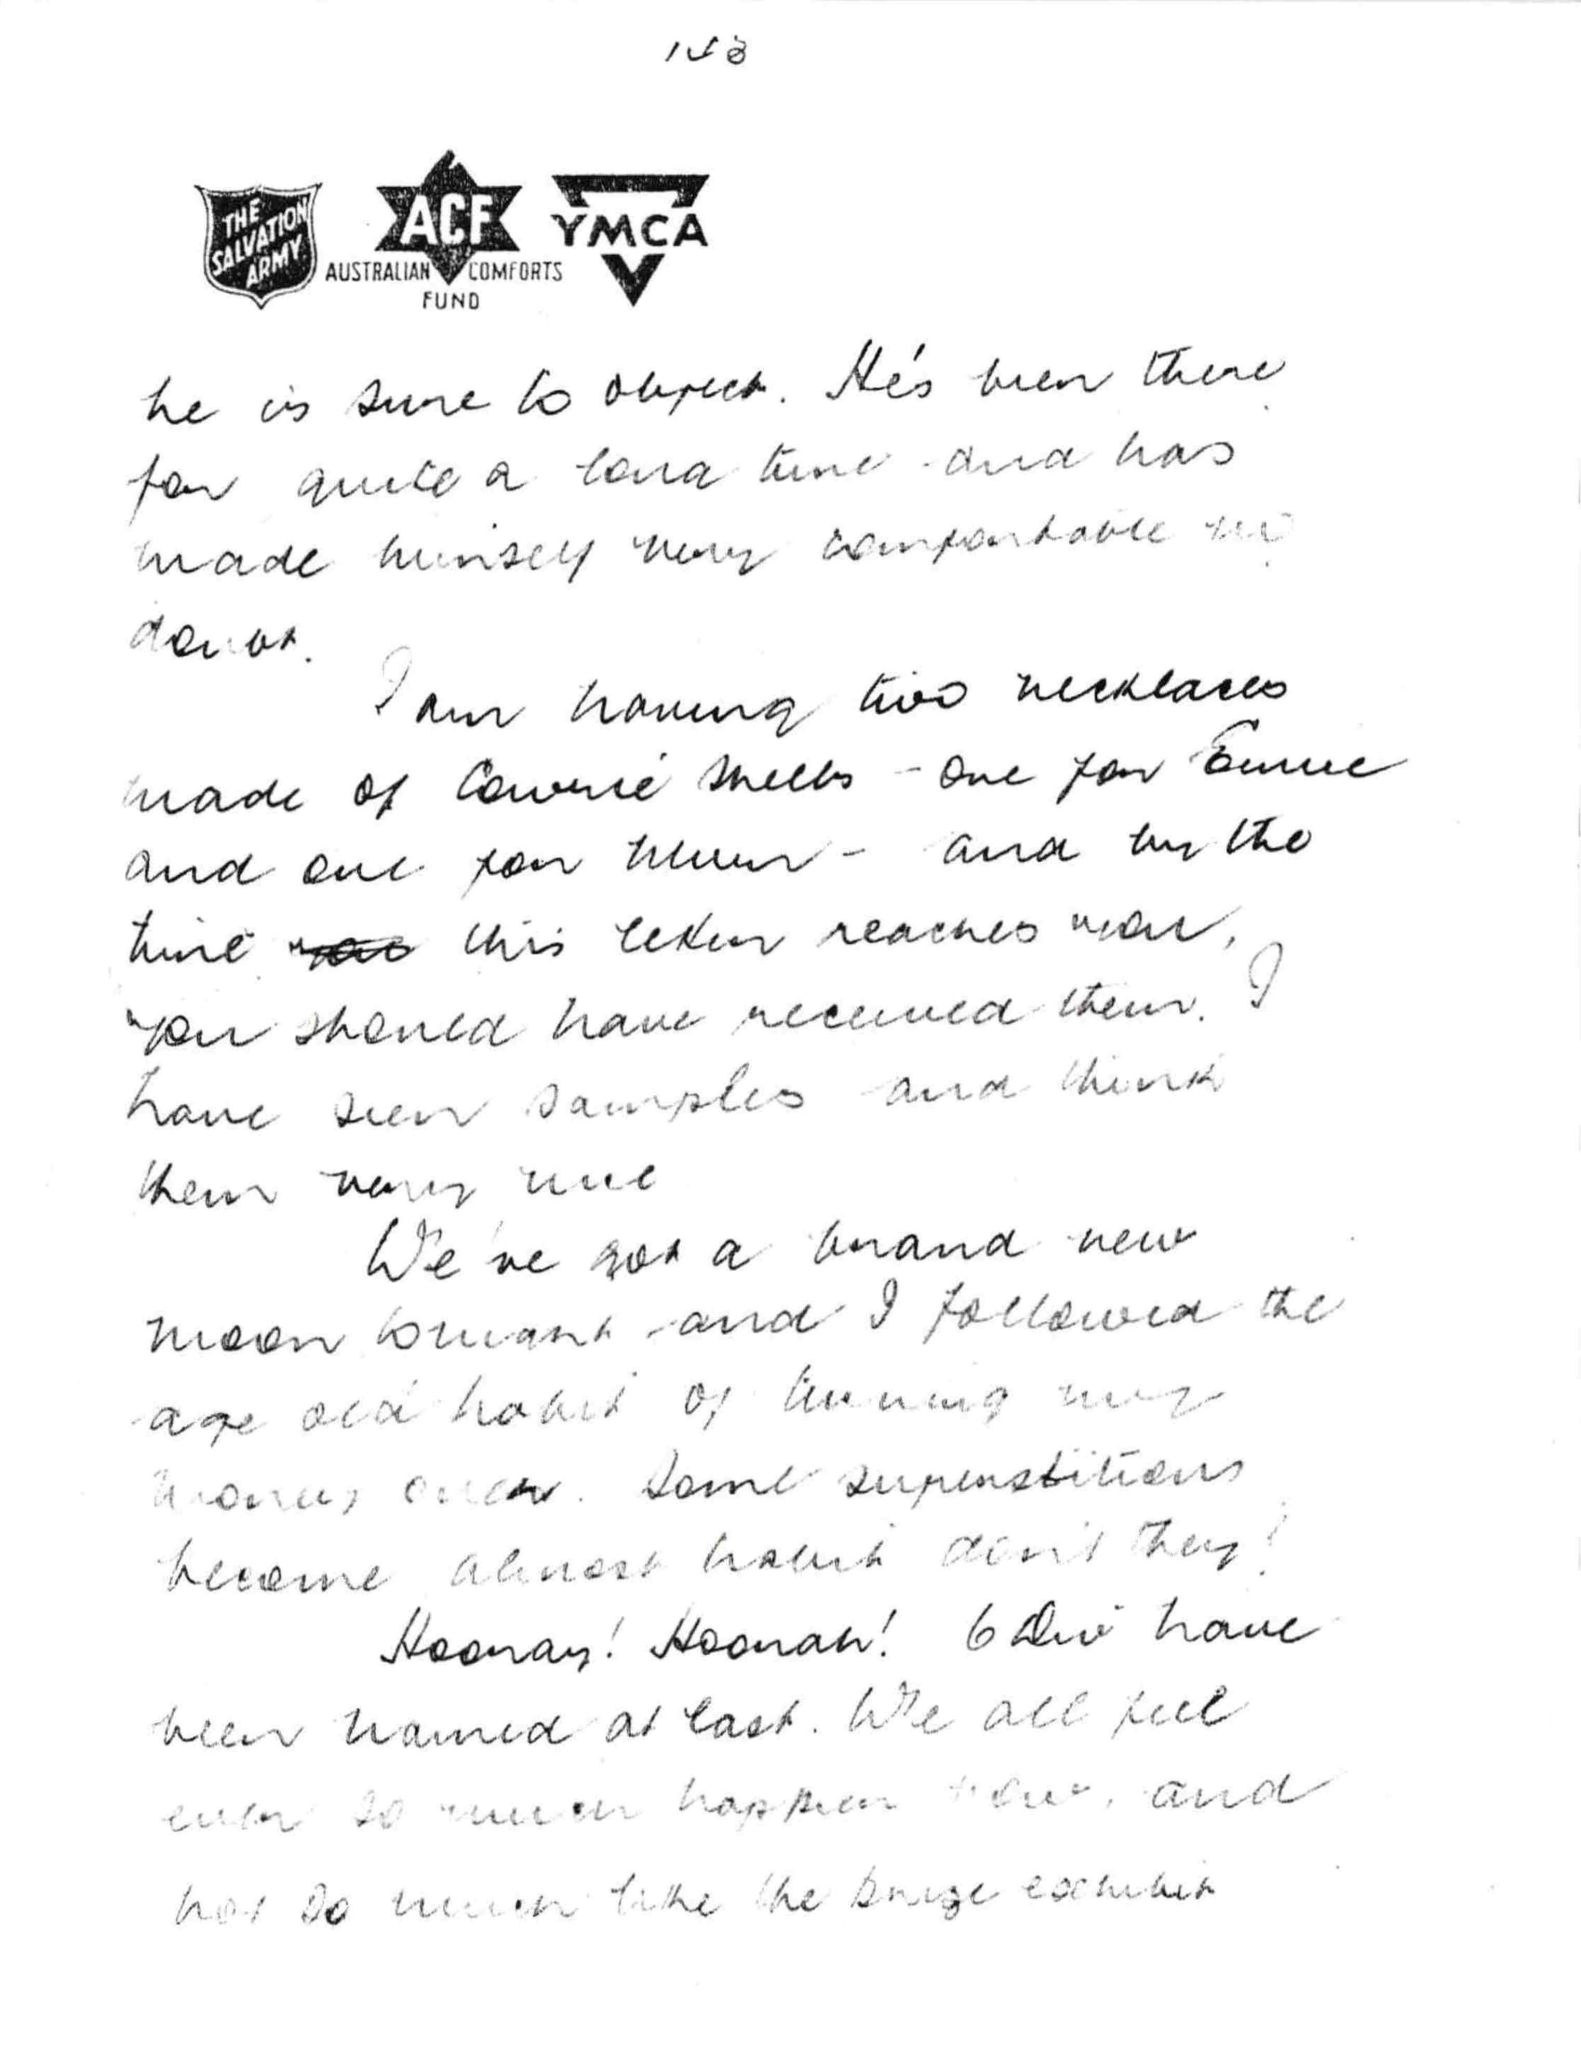 THE
SALVATION
ARMY
ACF
AUSTRALIAN COMFORTS
FUND
YMCA
he is sure to object. He's been there
for quite a long time and has
made himself very comfortable no
doubt.
I am having two necklaces
made of Cowrie shells - one for Emmie
and one for Mum - and by the
time this letter reaches you,
you should have received them. I
have seen samples and think
them very nice
We've got a brand new
moon tonight and I followed the
age old habit of turning my
money over. Some superstitions
become almost habit don't they!
Hooray! Hoorah! 6 Div have
been named at last. We all feel
ever so much happier now, and
not so much like the prize exhibit